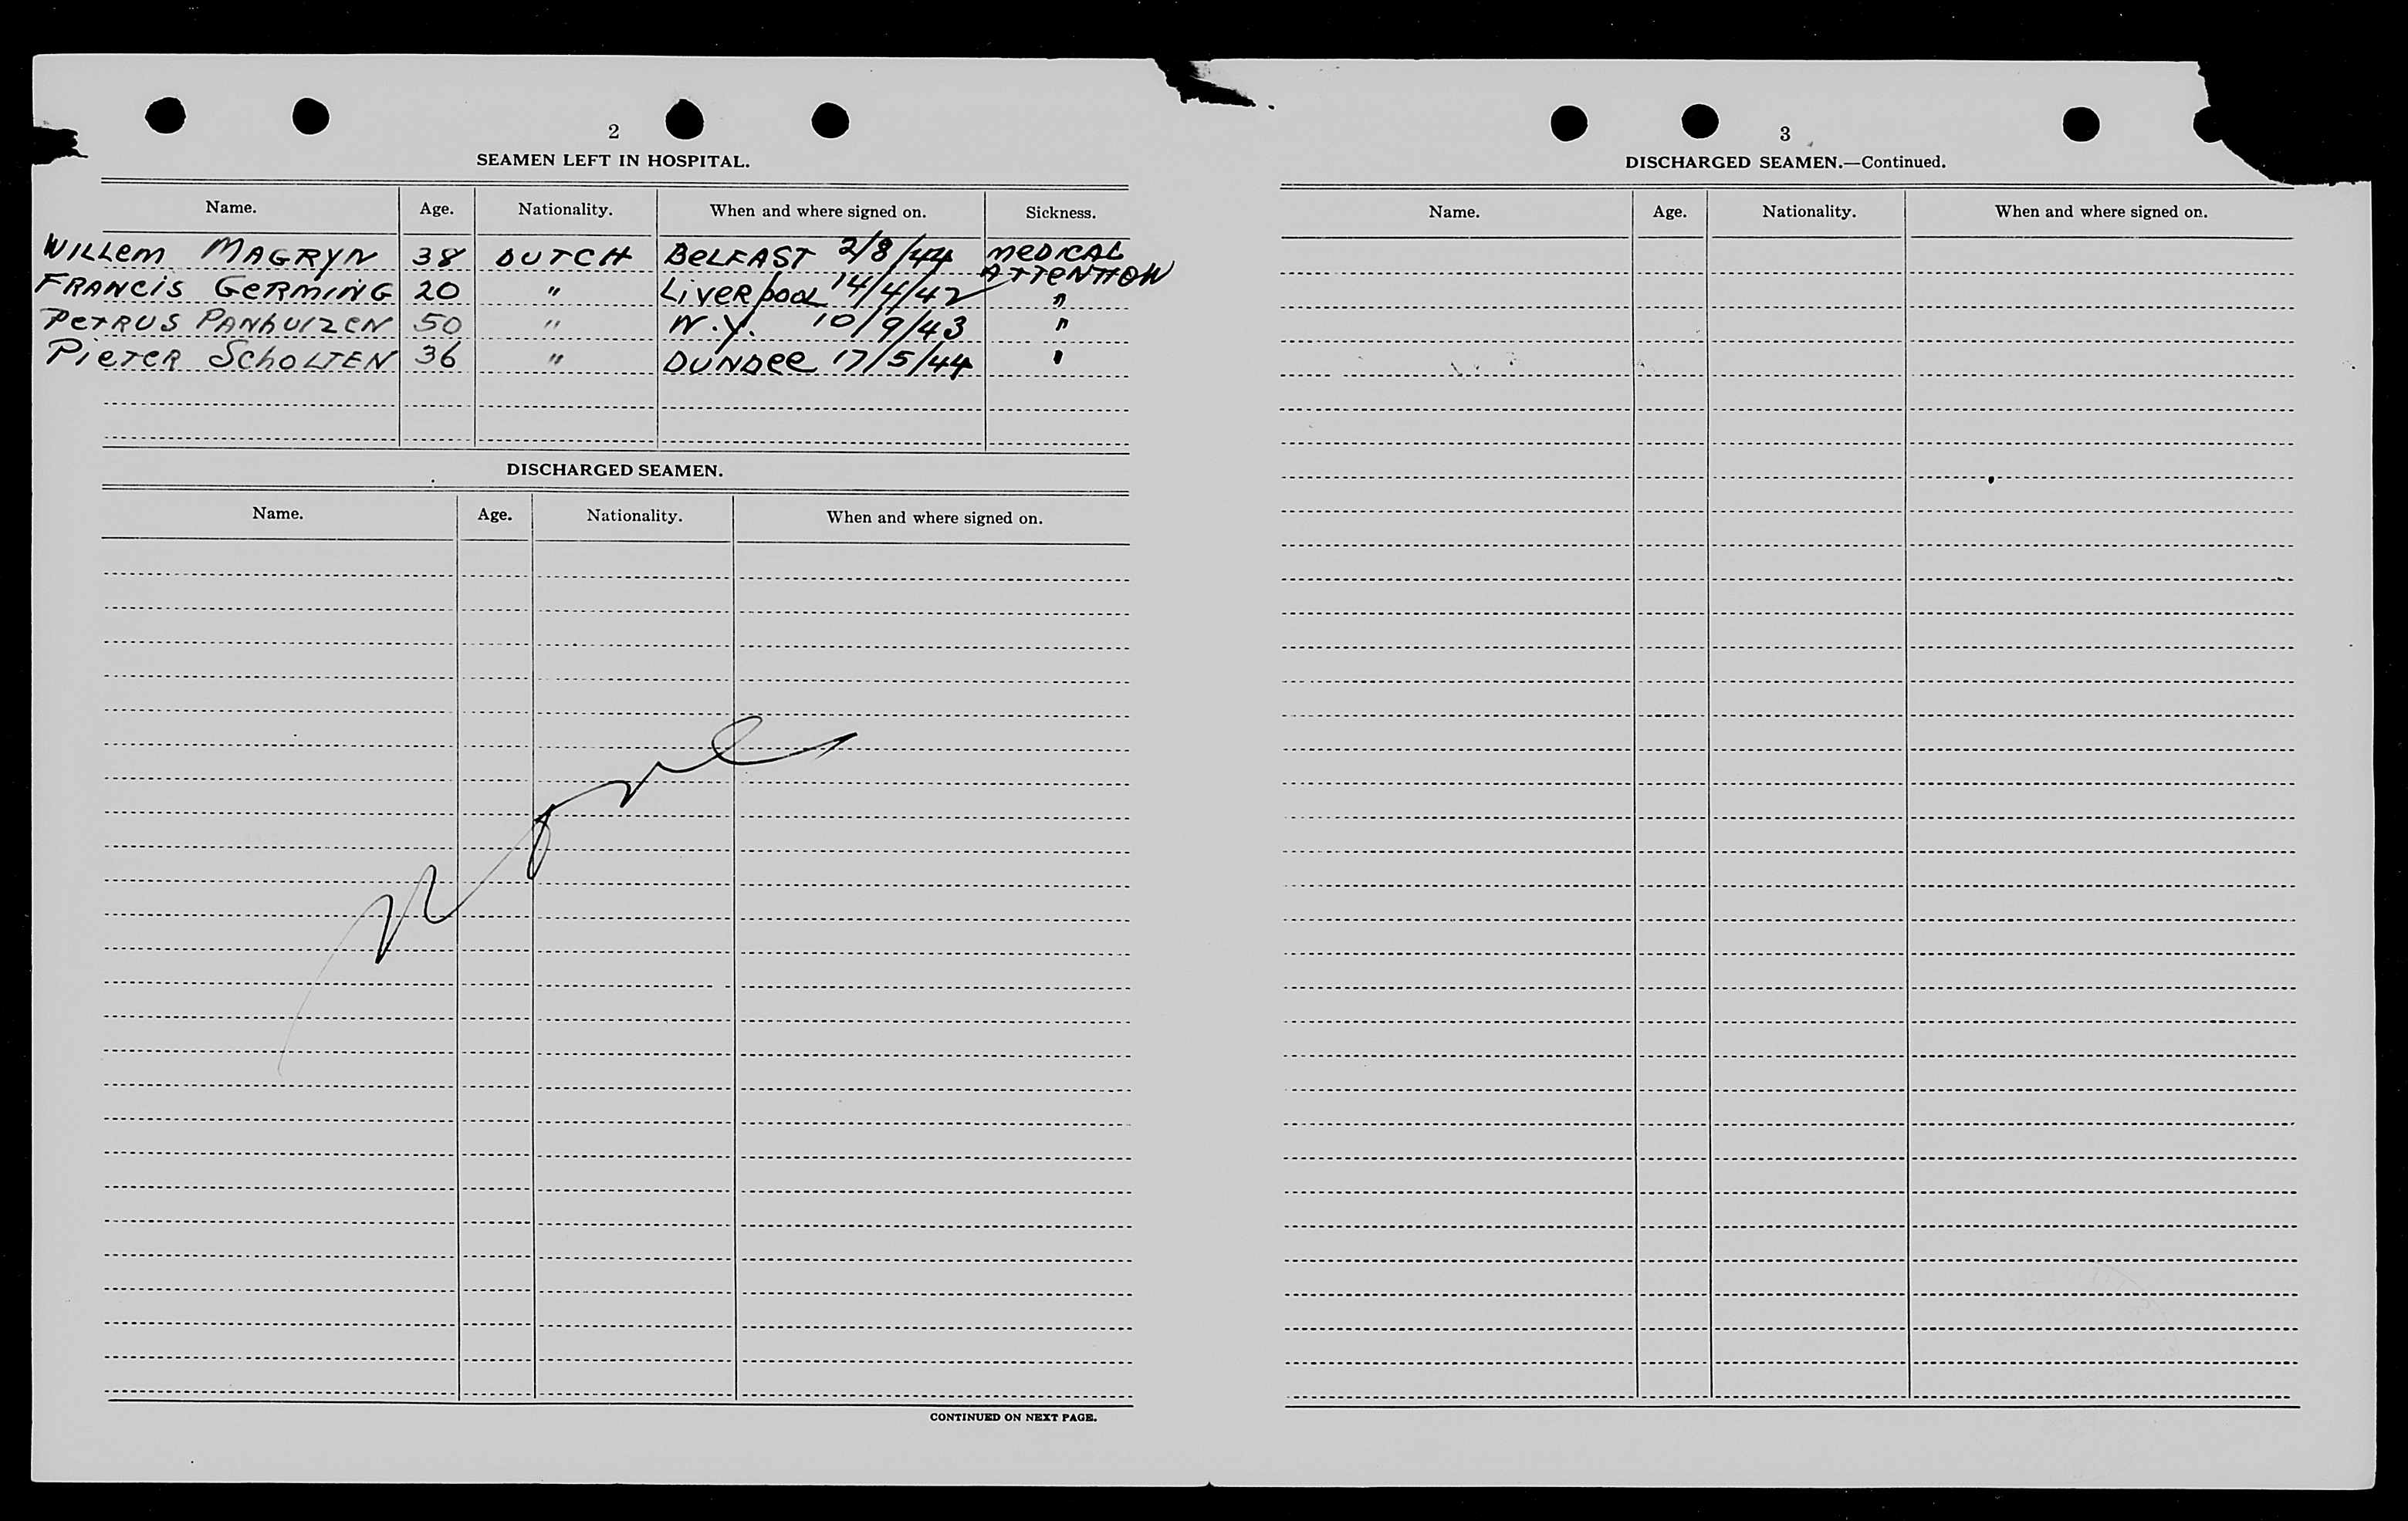 2
SEAMEN LEFT IN HOSPITAL.
Name. Age. Nationality. When and where signed on. Sickness.
WILLEM MAGRYN 38 DUTCH BELFAST 2/8/44 MEDICAL ATTENTION
FRANCIS GERMING 20 " LIVERPOOL 14/4/42 "
PETRUS PANHUIZEN 50 " N.Y. 10/9/43 "
PIETER SCHOLTEN 36 " DUNDEE 17/5/44 "
DISCHARGED SEAMEN.
Name. Age. Nationality. When and where signed on.
None
CONTINUED ON NEXT PAGE.
3
DISCHARGED SEAMEN.—Continued.
Name. Age. Nationality. When and where signed on.